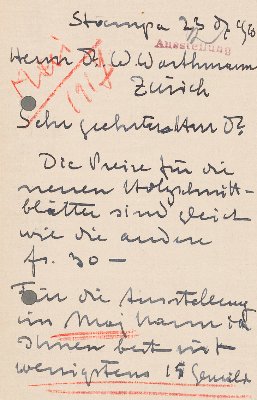 Stampa 23
Ausstellung
Herrn Dr. W. Wartmann
Zürich
Mai
1917
Sehr geehrter Herr Dr.
Die Preise für die
neuen Holzschnitt-
blätter sind gleich
wie die andere
fs. 30 –
Für die Ausstellung
im Maj kann ich
Ihnen mit
wenigstens 15